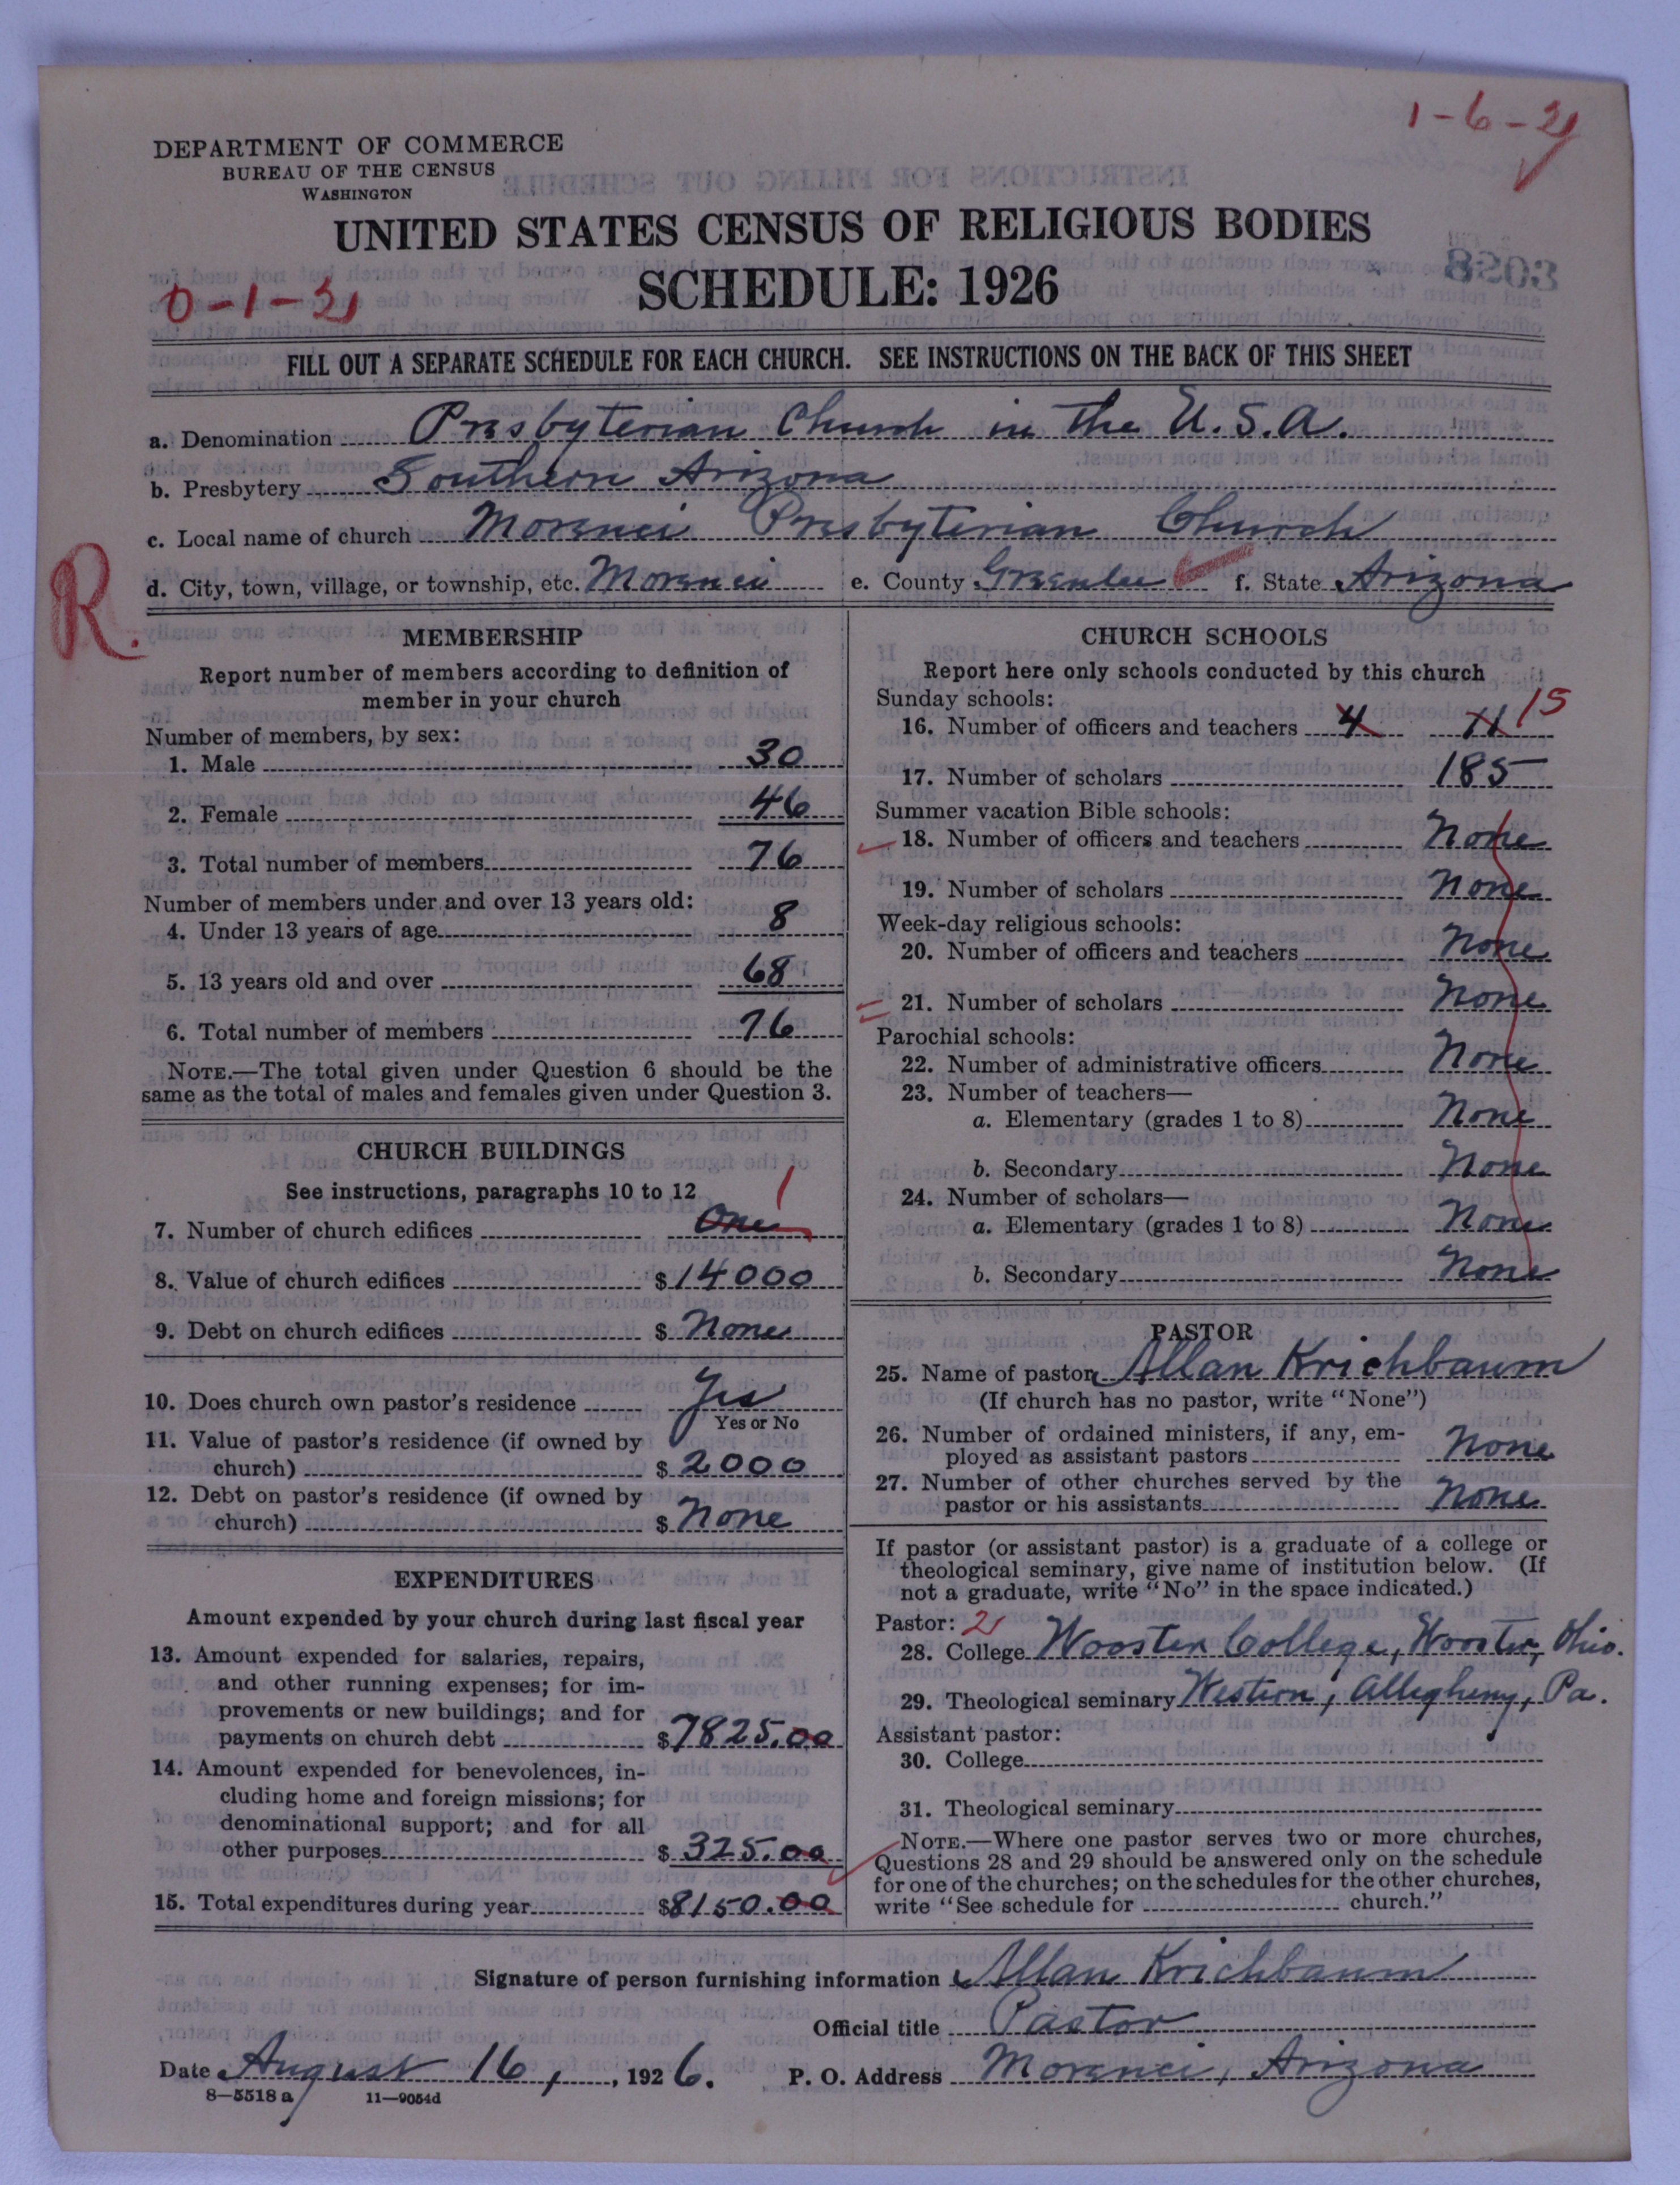 1-6-21
DEPARTMENT OF COMMERCE
BUREAU OF THE CENSUS
WASHINGTON
UNITED STATES CENSUS OF RELIGIOUS BODIES
SCHEDULE: 1926
0-1-21
FILL OUT A SEPARATE SCHEDULE FOR EACH CHURCH. SEE INSTRUCTIONS ON THE BACK OF THIS SHEET
a. Denomination Presbyterian Church in the U.S.A.
b. Presbytery Southern Arizona
c. Local name of church Morenci Presbyterian Church
d. City, town, village, or township, etc. Morenci e. County Greenlee f. State Arizona
R.
MEMBERSHIP
Report number of members according to definition of
member in your church
Number of members, by sex:
1. Male 30
2. Female 46
3. Total number of members 76
Number of members under and over 13 years old:
4. Under 13 years of age 8
5. 13 years old and over 68
6. Total number of members 76
NOTE.—The total given under Question 6 should be the
same as the total of males and females given under Question 3.
CHURCH BUILDINGS
See instructions, paragraphs 10 to 12
7. Number of church edifices One 1
8. Value of church edifices $14000
9. Debt on church edifices $ None
10. Does church own pastor's residence Yes
Yes or No
11. Value of pastor's residence (if owned by
church) $2000
12. Debt on pastor's residence (if owned by
church) $ None
EXPENDITURES
Amount expended by your church during last fiscal year
13. Amount expended for salaries, repairs,
and other running expenses; for im-
provements or new buildings; and for
payments on church debt $7825.00
14. Amount expended for benevolences, in-
cluding home and foreign missions; for
denominational support; and for all
other purposes $ 325.00
15. Total expenditures during year $8150.00
CHURCH SCHOOLS
Report here only schools conducted by this church
Sunday schools:
16. Number of officers and teachers 4 11 15
17. Number of scholars 185
Summer vacation Bible schools:
18. Number of officers and teachers None
19. Number of scholars None
Week-day religious schools:
20. Number of officers and teachers None
21. Number of scholars None
Parochial schools:
22. Number of administrative officers None
23. Number of teachers—
a. Elementary (grades 1 to 8) None
b. Secondary None
24. Number of scholars—
a. Elementary (grades 1 to 8) None
b. Secondary None
PASTOR
25. Name of pastor Allan Krichbaum
(If church has no pastor, write "None")
26. Number of ordained ministers, if any, em-
ployed as assistant pastors None
27. Number of other churches served by the
pastor or his assistants None
If pastor (or assistant pastor) is a graduate of a college or
theological seminary, give name of institution below. (If
not a graduate, write "No" in the space indicated.)
Pastor: 2
28. College Wooster College, Wooster, Ohio.
29. Theological seminary Western, Allegheny, Pa.
Assistant pastor:
30. College
31. Theological seminary
NOTE.—Where one pastor serves two or more churches,
Questions 28 and 29 should be answered only on the schedule
for one of the churches; on the schedules for the other churches,
write "See schedule for church."
Signature of person furnishing information Allan Krichbaum
Official title Pastor
Date August 16, 1926. P. O. Address Morenci, Arizona
8—5518 a 11—9054d